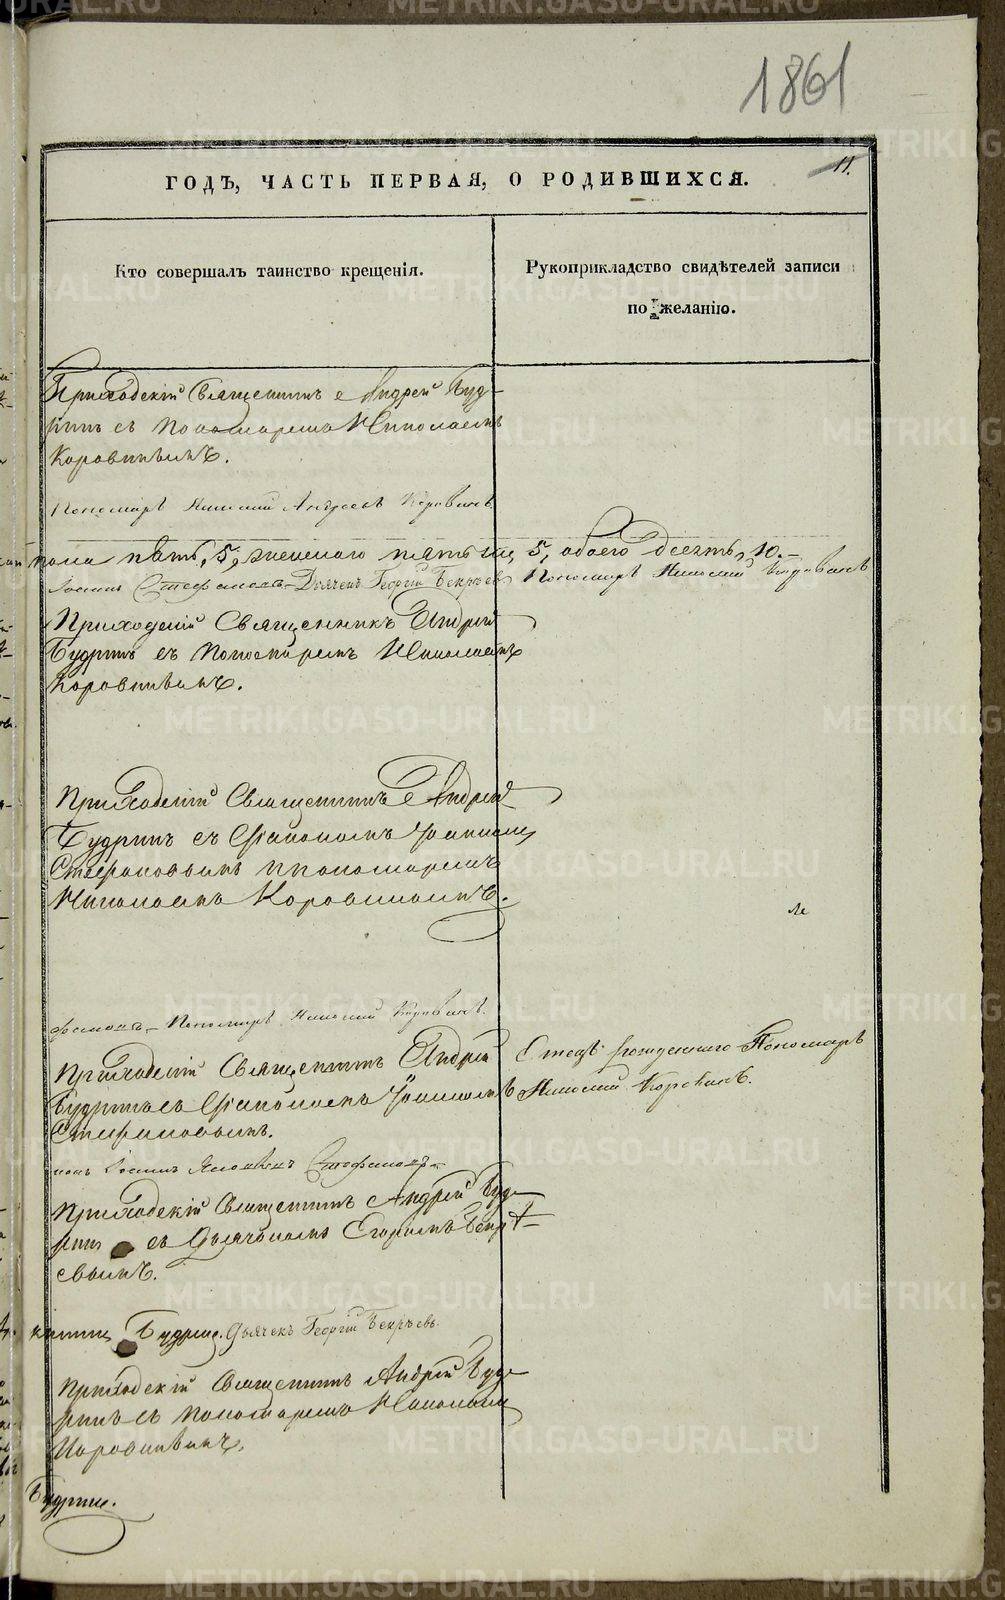 1861
11.
ГОДЪ, ЧАСТЬ ПЕРВАЯ, О РОДИВШИХСЯ.
Кто совершалъ таинство крещенія.
Рукоприкладство свидѣтелей записи
по желанію.
Приходскій Священникъ Андрей Буд-
ринъ съ Пономаремъ Николаемъ
Коровинымъ.
Пономарь Николай Андреевъ Коровинъ
пола пять, 5, женскаго пять, 5, обоего десять, 10.
Іоаннъ Стефановъ Дьячекъ Георгій Бекрѣевъ Пономарь Николай Коровинъ
Приходскій Священникъ Андрей
Будринъ съ Пономаремъ Николаемъ
Коровинымъ.
Приходскій Священникъ Андрей
Будринъ съ Діакономъ Іоанномъ
Стефановымъ и пономаремъ
Николаемъ Коровинымъ.
Пономарь Николай Коровинъ.
Приходскій Священникъ Андрей
Будринъ съ Діакономъ Іоанномъ
Стефановымъ.
Отецъ рожденнаго Пономарь
Николай Коровинъ.
Іоаннъ Стефановъ
Приходскій Священникъ Андрей Буд-
ринъ съ Дьячкомъ Егоромъ Бекрѣ-
евымъ.
Будринъ. Дьячекъ Георгій Бекрѣевъ.
Приходскій Священникъ Андрей Буд-
ринъ съ Пономаремъ Николаемъ
Коровинымъ.
Будринъ.
METRIKI.GASO-URAL.RU